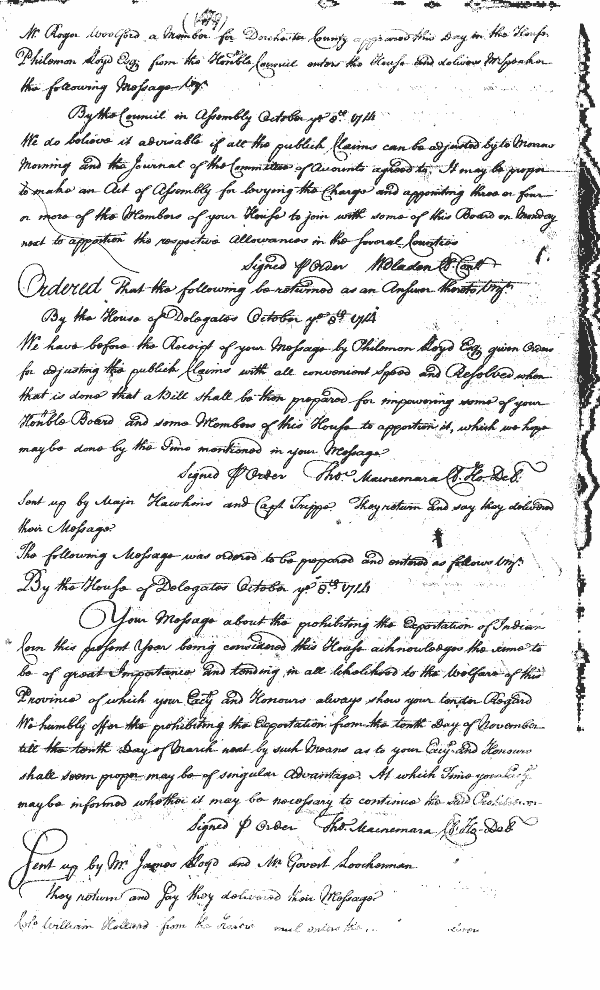 Mr Roger Woolford a Member for Dorchester County appeared this Day in the House
Philemon Lloyd Esqr from the Honble Council enters the House and delivers Mr Speaker
the following Message Vizt
By the Council in Assembly October ye 8th 1714
We do believe it advisable if all the publick Claims can be adjusted by to Morrow
Morning and the Journal of the Committee of Accounts agreed to. It may be proper
to make an Act of Assembly for levying the Charge and appointing three or four
or more of the Members of your House to join with some of this Board on Monday
next to apportion the respective Allowances in the several Counties
Signed p Order WBladen Cl. Conl
Ordered That the following be returned as an Answer thereto Vizt
By the House of Delegates October ye 8th 1714
We have before the Receipt of your Message by Philemon Lloyd Esqr given Orders
for adjusting the publick Claims with all convenient Speed and Resolved when
that is done that a Bill shall be then prepared for impowering some of your
Honble Board and some Members of this House to apportion it, which we hope
may be done by the Time mentioned in your Message
Signed p Order Thos. Macnemara Cl. Ho. Del.
Sent up by Major Hawkins and Capt Trippe. They return and say they delivered
their Message
The following Message was ordered to be prepared and entered as follows Vizt
By the House of Delegates October ye 8th 1714
Your Message about the prohibiting the Exportation of Indian
Corn this present Year being considered this House acknowledges the same to
be of great Importance and tending in all likelihood to the Welfare of this
Province of which your Excy and Honours always show your tender Regard
We humbly offer the prohibiting the Exportation from the tenth Day of November
till the tenth Day of March next by such Means as to your Excy and Honours
shall seem proper may be of singular Advantage. At which Time your Excy
may be informed whether it may be necessary to continue the said Prohibition
Signed p Order Thos. Macnemara Cl. Ho. Del.
Sent up by Mr James Lloyd and Mr Govert Loockerman
they return and Say they delivered their Message
William Holland from the enters the